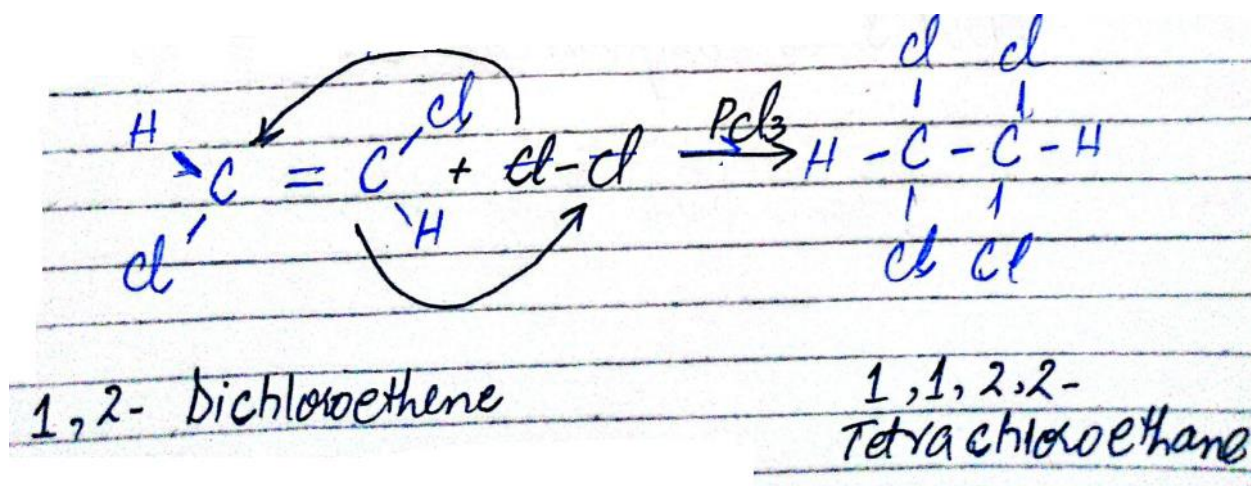 Cl Cl
H Cl PCl3
C = C + Cl-Cl → H - C - C - H
Cl H
Cl Cl
1,2- Dichloroethene
1,1,2,2-
Tetrachloroethane